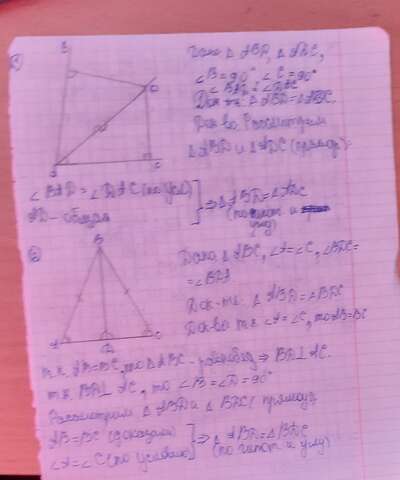 Дано Δ ABD, Δ ADC,
∠B=90° ∠C=90°
∠BAD=∠DAC
Док-ть: Δ ABD=Δ ADC.
Док-во. Рассмотрим
Δ ABD и Δ ADC (прямоуг):
∠BAD=∠DAC (по усл)
AD - общая
⇒ Δ ABD=Δ ADC
(по гипот и
углу)
B
D
A
C
B
A
D
C
Дано Δ ABC, ∠A=∠C, ∠BDC=
=∠BDA
Док-ть: Δ ABD=ΔBDC
Док-во т.к ∠A=∠C, то AB=BC
т.к. AB=BC, то Δ ABC - равнобед ⇒ BD⊥AC.
т.к. BD⊥AC, то ∠B=∠D=90°
Рассмотрим Δ ABD и Δ BDC (прямоуг
AB=BC (доказали)
∠A=∠C (по условию)
⇒ Δ ABD=ΔBDC
(по гипот и углу)